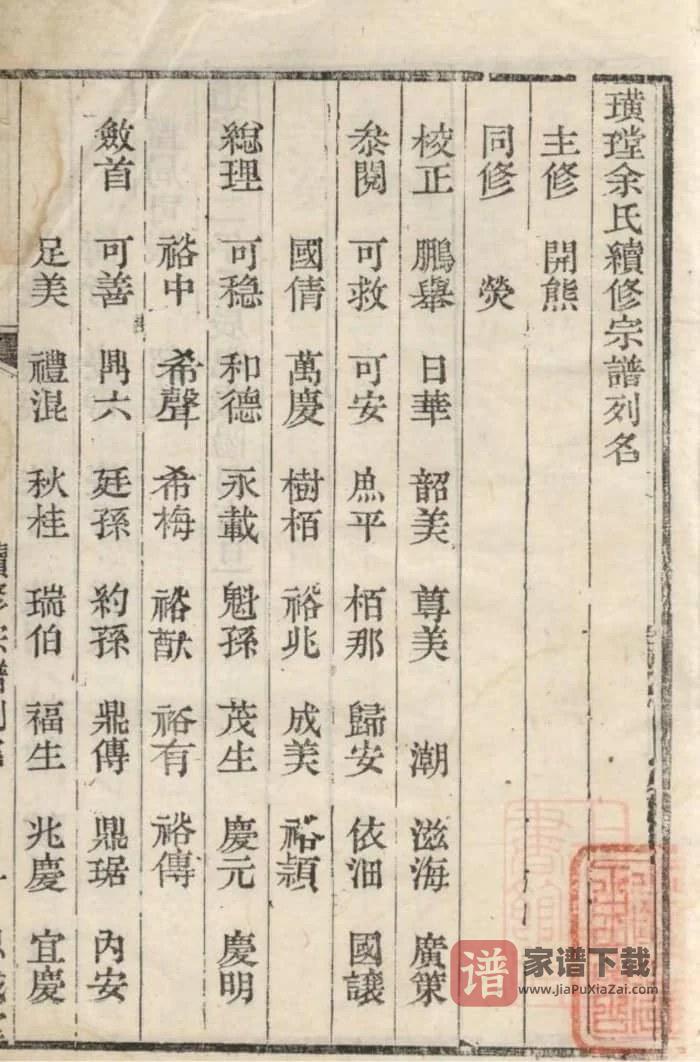 璜瑝余氏續修宗譜列名
主修 開熊
同修 熒
校正 鵬舉 日華 韶美 尊美 潮 滋海 廣策
叅閱 可救 可安 庶平 栢那 歸安 依沺 國讓
國倩 萬慶 樹栢 裕兆 成美 裕穎
總理 可稳 和德 永載 魁孫 茂生 慶元 慶明
裕中 希聲 希梅 裕猷 裕有 裕傳
斂首 可善 興六 廷孫 約孫 鼎傳 鼎琚 內安
足美 禮混 秋桂 瑞伯 福生 兆慶 宜慶
譜 家谱下载
www.JiaPuXiaZai.com